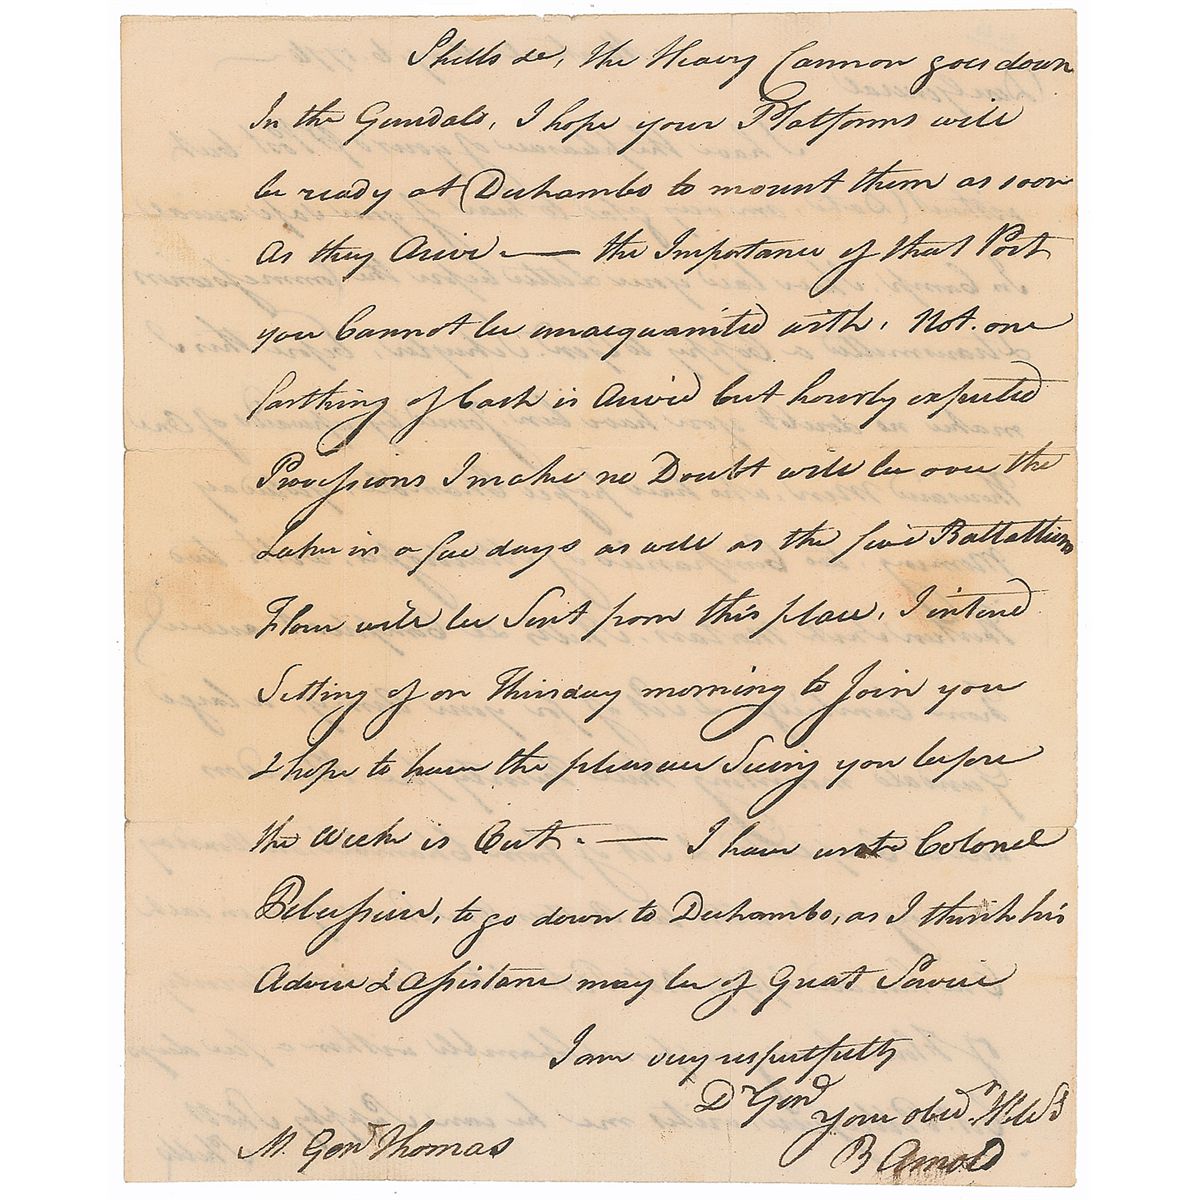 Shells &c, the Heavy Cannon goes down
In the Gundalo, I hope your Platforms will
be ready at Dechambo to mount them as soon
As they Arive — the Importance of that Post
you Cannot be unacquainted with. Not one
farthing of Cash is Arivd but hourly expected
Provissions I make no Doubt will be over the
Lake in a few days as well as the five Battallions
Flour will be Sent from this place, I intend
Setting of on Thursday morning to Join you
& hope to have the pleasure Seeing you before
the Week is Out. — I have wrote Colonel
Pelissiere, to go down to Dechambo, as I think his
Advice & Assistane may be of Great Service
I am very respectfully
Dr Genl
your obedt H'ble St
B Arnold
M. Genl Thomas